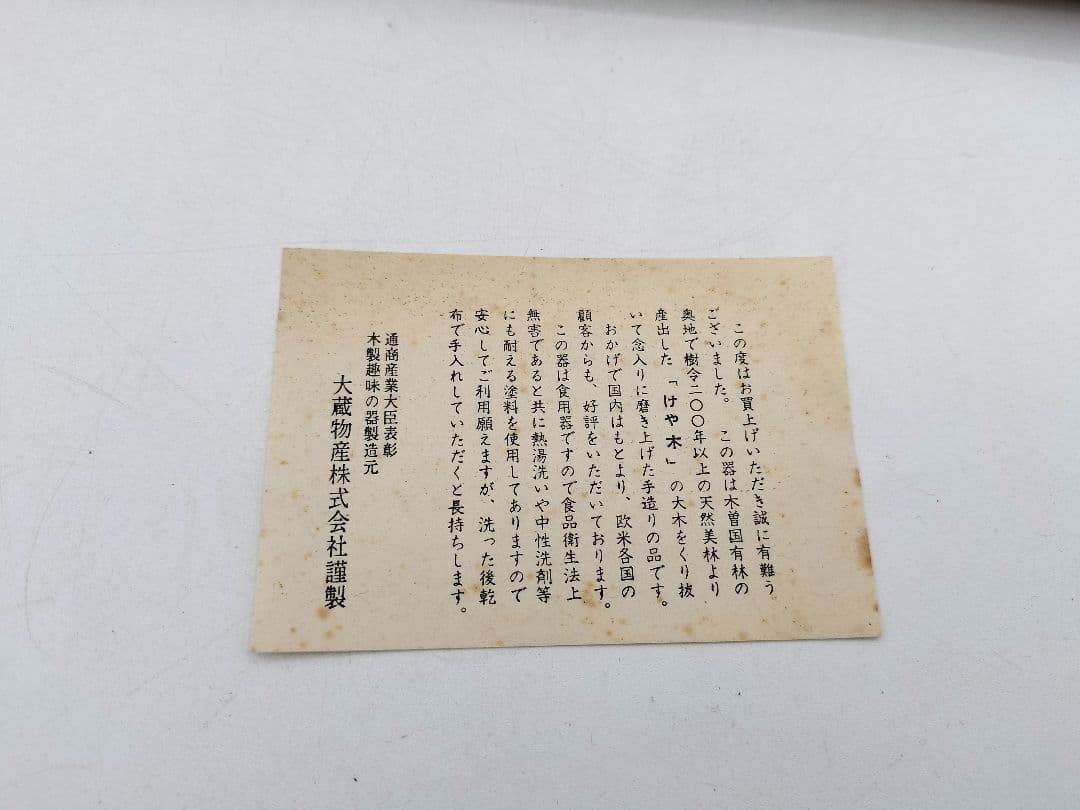 この度はお買上げいただき誠に有難う
ございました。　この器は木曽国有林の
奥地で樹令二〇〇年以上の天然美林より
産出した「けや木」の大木をくり抜
いて念入りに磨き上げた手造りの品です。
おかげで国内はもとより、欧米各国の
顧客からも、好評をいただいております。
この器は食用器ですので食品衛生法上
無害であると共に熱湯洗いや中性洗剤等
にも耐える塗料を使用してありますので
安心してご利用願えますが、洗った後乾
布で手入れしていただくと長持ちします。
通商産業大臣表彰
木製趣味の器製造元
大蔵物産株式会社謹製